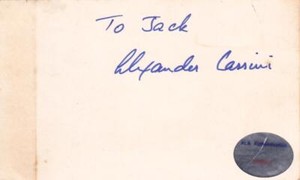 To Jack
Alexander Cassini